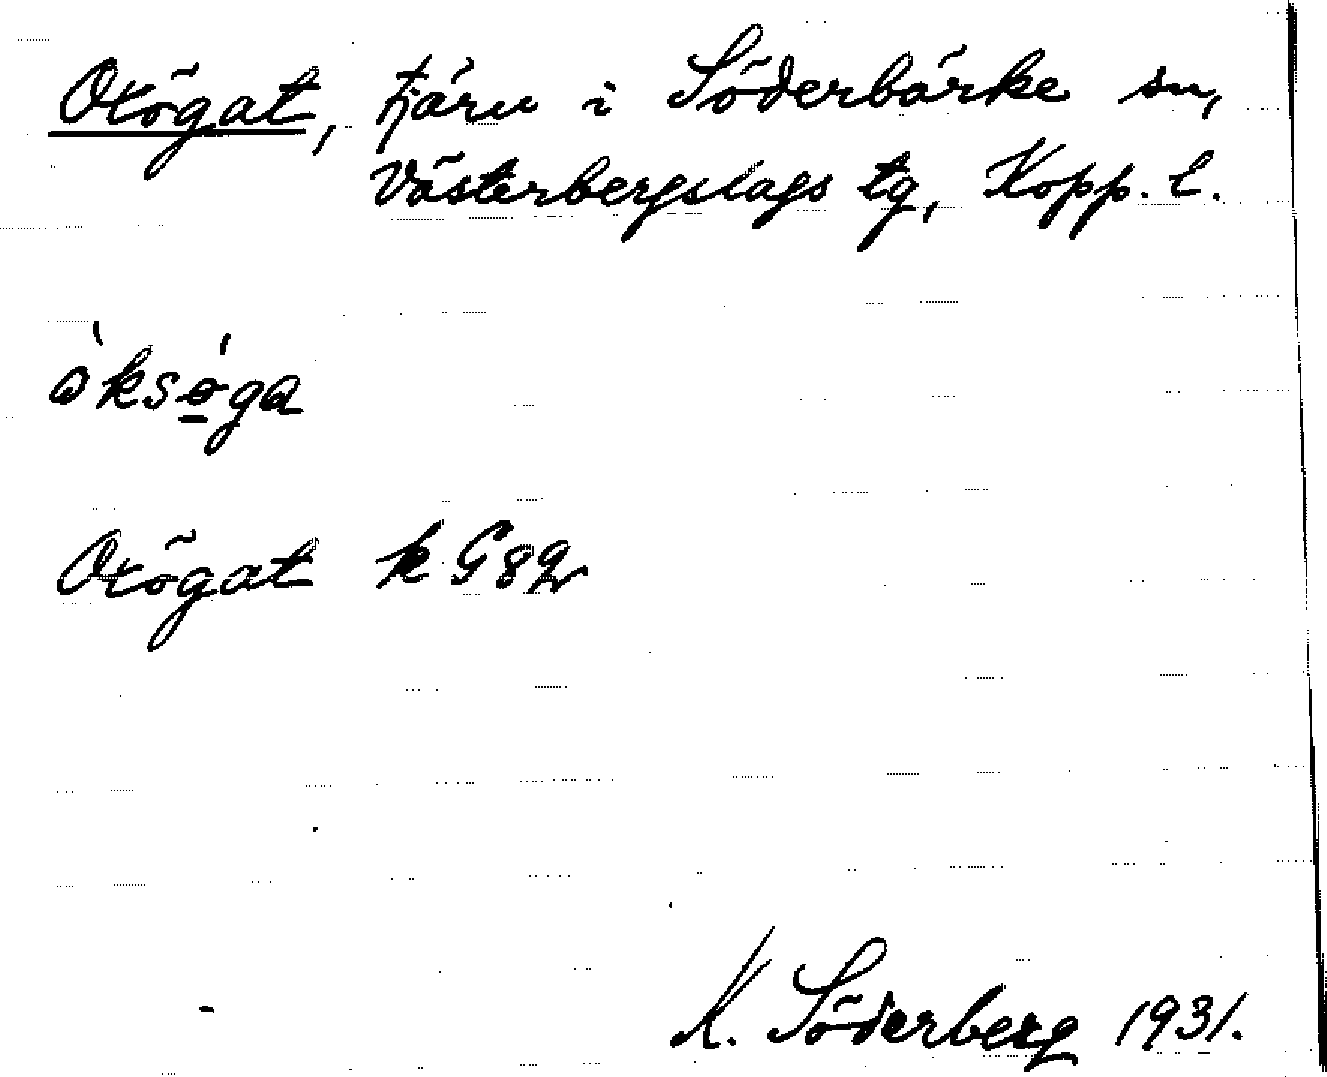 Oxögat, tjärn i Söderbärke sn,
Västerbergslags tg, Kopp. l.
Oxögat k G82
K. Söderberg 1931.